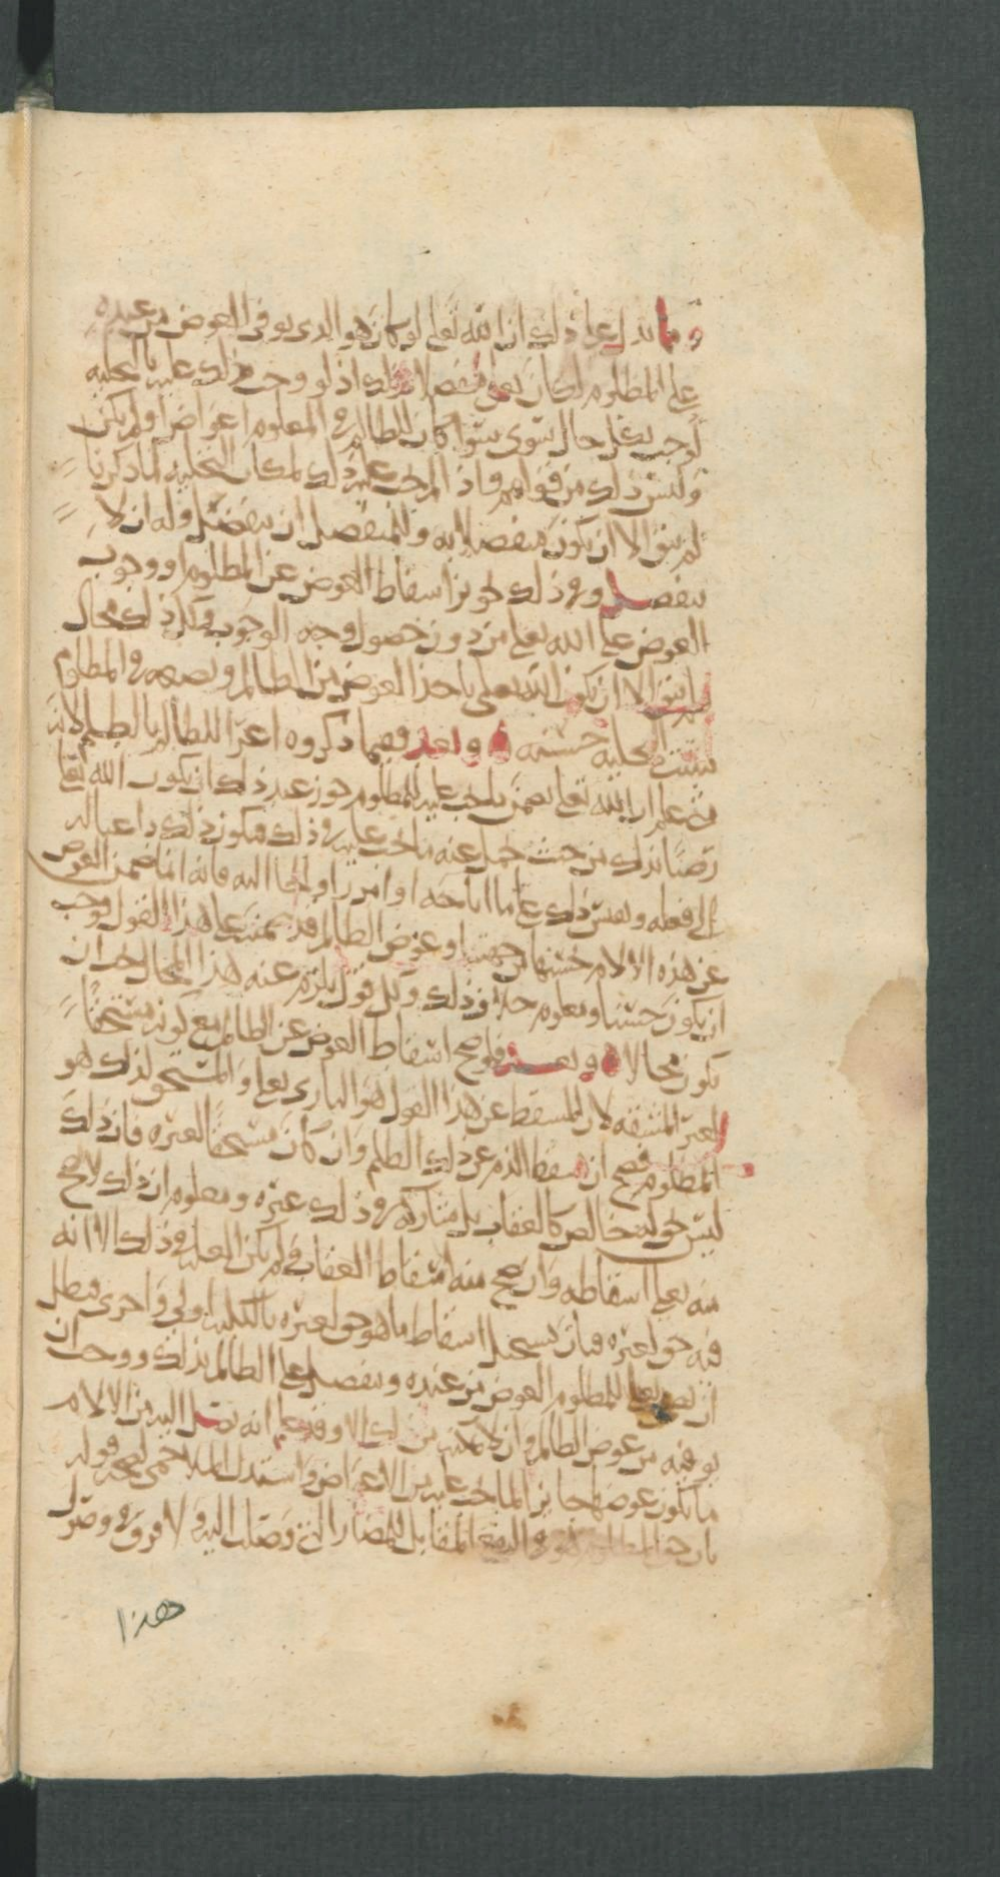 ومما يدل على ذلك ان الله تعلى لو كان هو الذى يوفى العوض من عنده
على المظلوم لكان تعلى متفضلا بذلك اذ لو وجب ذلك عليه بالتخليه
لوجب بكل حال سوى سوا كان للظالم فى المعلوم اعواض او لم يكن
وليس ذلك من قولهم فاذا لم يجب عليه ذلك لمكان التخليه لما ذكرنا
لم يبق الا ان يكون متفضلا به وللمتفضل ان يتفضل وله ان لا
يتفضل وفى ذلك تجويز اسقاط العوض عن المظلوم او وجوب
العوض على الله تعلى من دون حصول وجه الوجوب وكل ذلك محال
فلم يبق الا ان يكون الله تعلى ياخذ العوض من الظالم ويضعه فى المظلوم
لتثبت التخليه حسنه وبعد ففيما ذكروه اغرا للظالم بالظلم لانه
متى علم ان الله تعلى يضمن ما يجب عليه للمظلوم جوز عند ذلك ان يكون الله تعلى
رضيا بذلك من حيث حمل عنه ما يجب عليه فى ذلك فيكون ذلك داعيا له
الى فعله ويقيس ذلك على ما اباحه او امر به او الجا اليه فانه انما ضمن العوض
عن هذه الالام لحسنها من جهته وعوض الظالم قد ضمنه على هذا القول فوجب
ان يكون حسنا ومعلوم خلاف ذلك وكل قول يلزم عنه هذا المحال يجب ان
يكون محالا وبعد فلو صح اسقاط العوض عن الظالم مع كونه مستحقا
لغير المسقط لان المسقط عن هذا القول هو البارى تعلى والمستحق لذلك هو
المظلوم فصح ان يسقط الذم عن ذلك الظلم وان كان مستحقا لغيره فان ذلك
ليس بحق له خالص كالعقاب بل يشاركه فى ذلك غيره ومعلوم ان ذلك لا يصح
منه تعلى اسقاطه وان صح منه اسقاط العقاب ولم يكن العله فى ذلك الا انه
فيه حق لغيره فبان يستحيل اسقاط ما هو حق لغيره بالكليه اولى واحرى فبطل
ان يضمن تعلى للمظلوم العوض من عنده ويتفضل على الظالم بذلك ووجب ان
يوفيه من عوض الظالم وان لا يمكنه من ذلك الا وقد علم انه يصل اليه من الالام
ما يكون عوضها جابرا لما يجب عليه من الاعواض واستدل الملاحمى لصحة قوله
بان حق المظلوم هو النفع المقابل للمضار التى وصلت اليه ولا فرق فى وصول
هذا